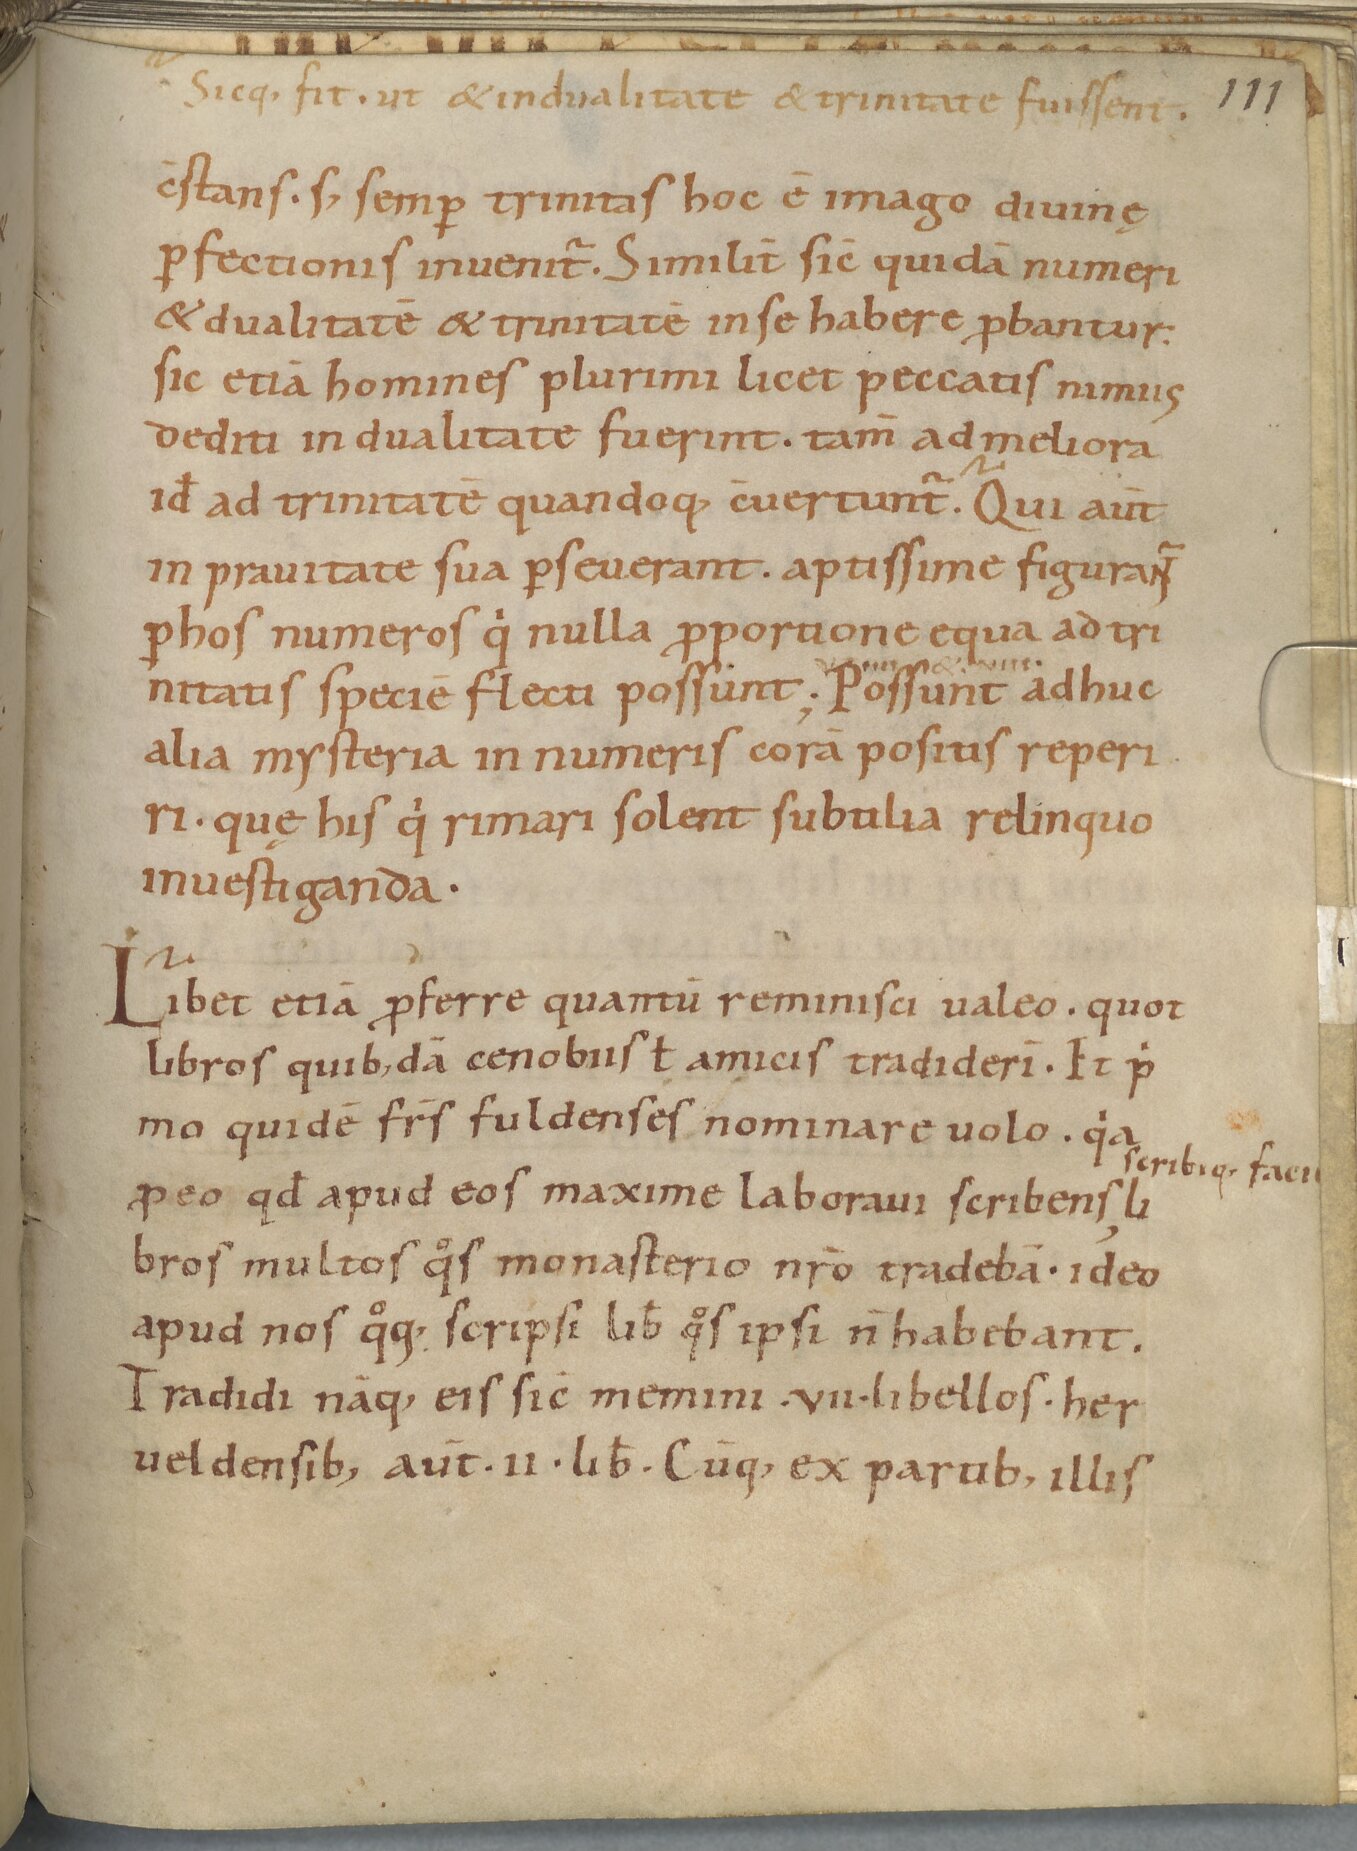 Sicq, fit . ut & indualitate & trinitate fuissent.
111
c̄stans . s, semꝑ trinitas hoc ē imago diuinę
ꝑfectionis inuenit᷑. Similit̄ sic̄ quidā numeri
& dualitatē & trinitatē inse habere ꝓbantur:
sic etiā homines plurimi licet peccatis nimiis
dediti in dualitate fuerint . tam̄ ad meliora
id̄ ad trinitatē quandoq, c̄uertunt᷑. Qui aut̄
in prauitate sua ꝑseuerant . aptissime figurant᷑
ꝑ hos numeros qi̇ nulla ꝓportione equa ad tri
nitatis speciē flecti possunt; Possunt adhuc
alia mysteria in numeris corā positis reperi
ri . quę his qi̇ rimari solent subtilia relinquo
inuestiganda .
Libet etiā ꝓferre quantū reminisci ualeo . quot
libros quib,dā cenobiis ł amicis tradiderī . Et pi̇
mo quidē fr̄s fuldenses nominare uolo . qi̇a
scribiq, faci
ꝓ eo qd̄ apud eos maxime laboraui scribens, li
bros multos qͦs monasterio nr̄o tradebā . ideo
apud nos qͦq, scripsi lib̄ qͦs ipsi n̄ habebant .
Tradidi nāq, eis sic̄ memini . vii . libellos . her
ueldensib, aut̄ . ii . lib̄ . Cūq, ex partib, illis